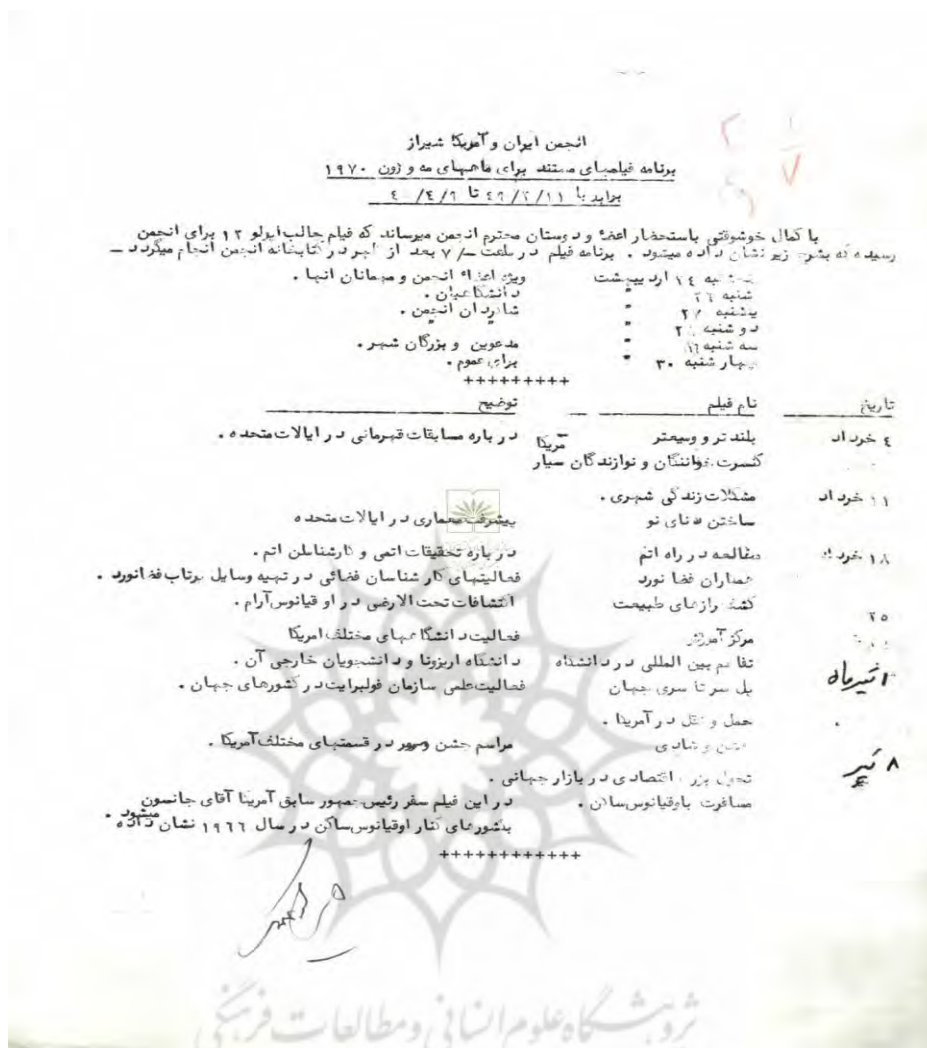 انجمن ایران و آمریکا شیراز
برنامه فیلمهای مستند برای ماههای مه و ژون ۱۹۷۰
برابر با
با کمال خوشوقتی باستحضار اعضاء و دوستان محترم انجمن میرساند که فیلم جالب اپولو ۱۲ برای انجمن
رسیده که بشرح زیر نشان داده میشود . برنامه فیلم در ساعت ۷ بعد از ظهر در کتابخانه انجمن انجام میگردد –
پنجشنبه ۲۴ اردیبهشت ویژه اعضاء انجمن و میهمانان آنها .
شنبه ۲۶ " دانشگاهیان .
یکشنبه " شاگردان انجمن .
دو شنبه "
سه شنبه " مدعوین و بزرگان شهر .
چهار شنبه ۳۰ " برای عموم .
+++++++++
تاریخ نام فیلم توضیح
۴ خرداد بلند تر و وسیعتر در باره مسابقات قهرمانی در ایالات متحده آمریکا .
کنسرت خوانندگان و نوازندگان سیار
۱۱ خرداد مشکلات زندگی شهری .
ساختن بناهای نو پیشرفت معماری در ایالات متحده
۱۸ خرداد مطالعه در راه اتم در باره تحقیقات اتمی و کارشناسان اتم .
معماران فضا نورد فعالیتهای کار شناسان فضائی در تهیه وسایل پرتاب فضانورد .
کشف رازهای طبیعت اکتشافات تحت الارضی در او قیانوس آرام .
۲۵
مرکز آموزش فعالیت دانشگاههای مختلف امریکا
۱ تیرماه تفاهم بین المللی در دانشگاه دانشگاه اریزونا و دانشجویان خارجی آن .
پل سر تا سری جهان فعالیت علمی سازمان فولبرایت در کشورهای جهان .
حمل و نقل در آمریکا .
۸ تیر جشن و شادی مراسم جشن وسرور در قسمتهای مختلف آمریکا .
تحول بزرگ اقتصادی در بازار جهانی .
مسافرت باوقیانوس ساکن . در این فیلم سفر رئیس جمهور سابق آمریکا آقای جانسون
بکشورهای کنار اوقیانوس ساکن در سال ۱۹۶۶ نشان داده میشود .
++++++++++++
پژوهشگاه علوم انسانی و مطالعات فرهنگی